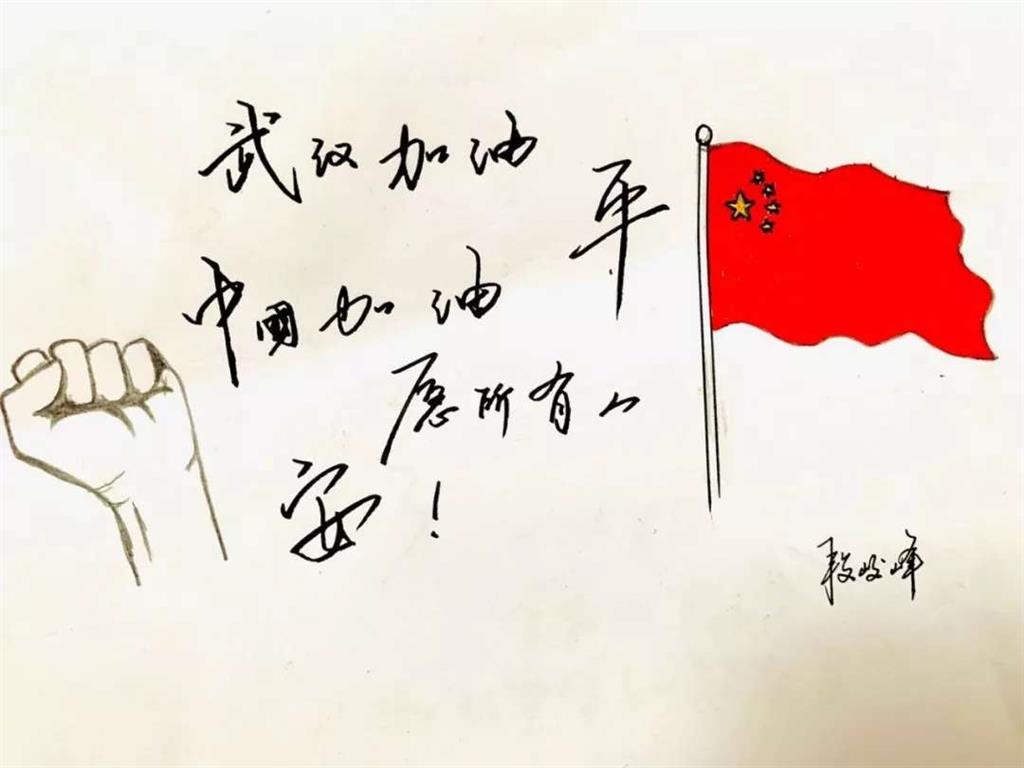 武汉加油
中國加油
愿所有人
平
安！
段峻峰